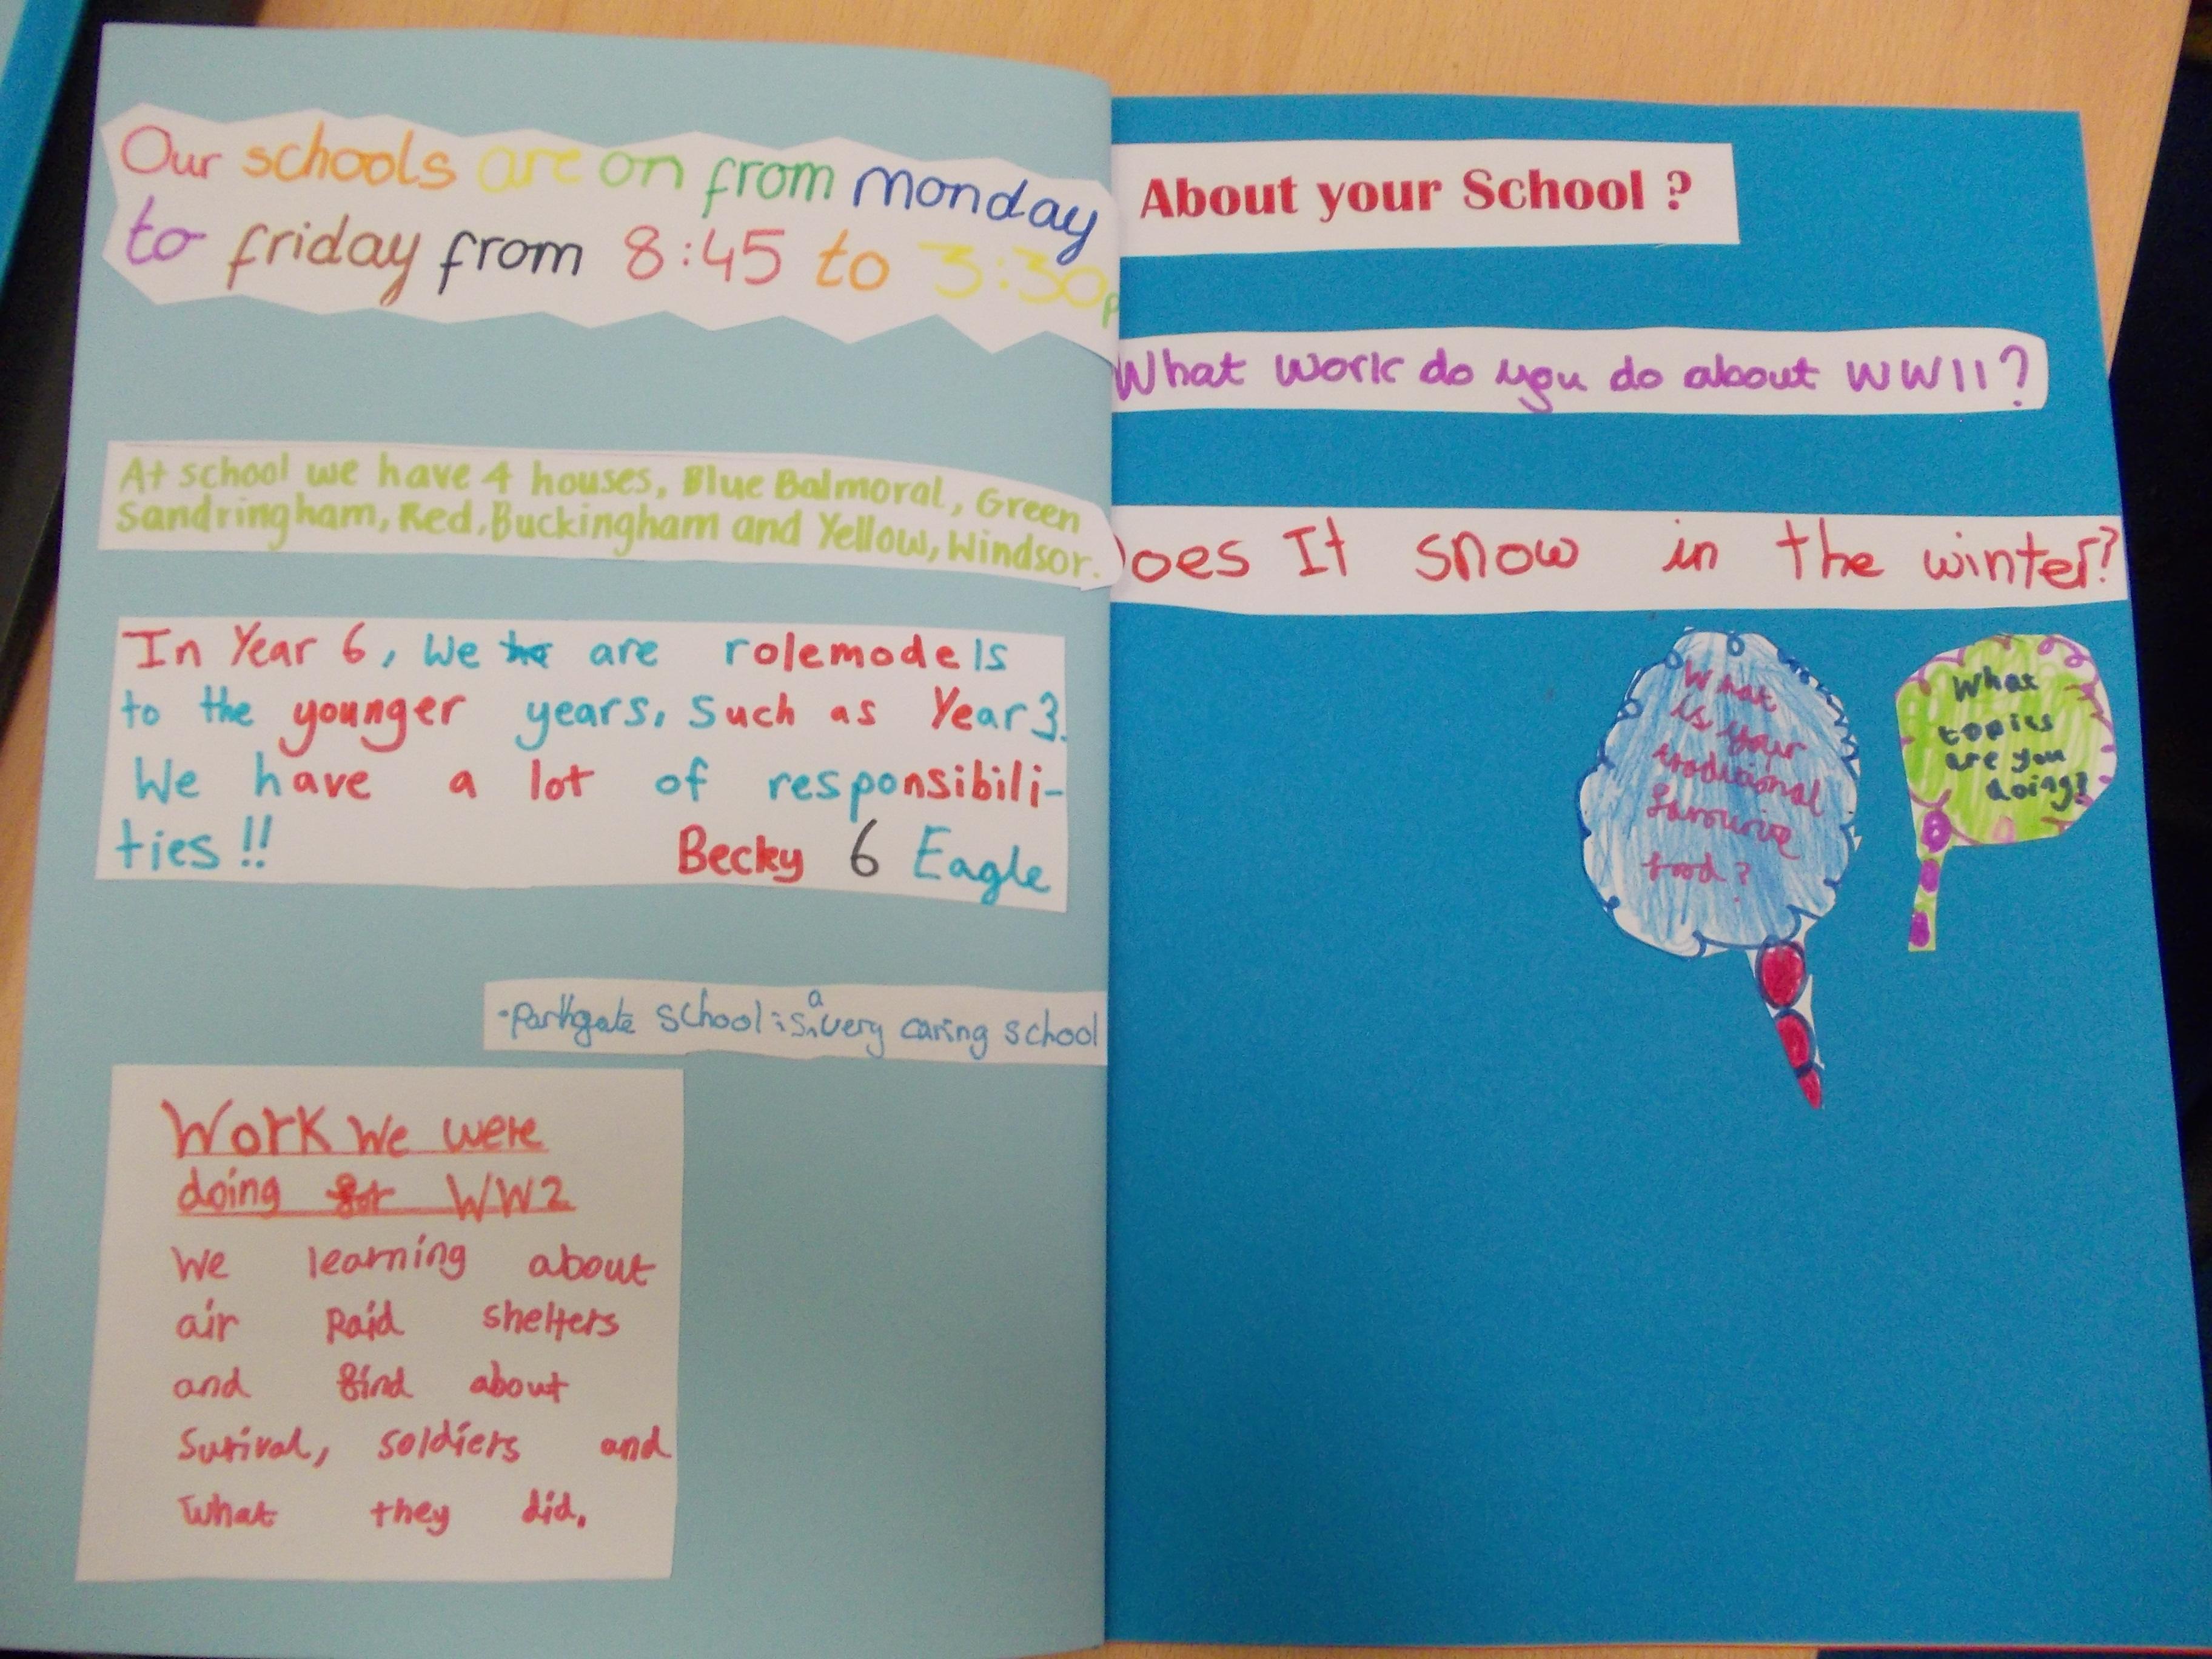 Our schools are on from monday
to friday from 8:45 to 3:30p
At school we have 4 houses, Blue Balmoral, Green
Sandringham, Red, Buckingham and Yellow, Windsor.
In Year 6, we are rolemodels
to the younger years, such as Year 3.
We have a lot of responsibili-
ties!!
Becky 6 Eagle
-Parkgate School is a very caring school
Work we were
doing for WW2
We learning about
air Raid shelters
and find about
Surival, soldiers and
what they did.
About your School ?
What work do you do about WWII?
Does It snow in the winter?
What
is your
traditional
favourite
food?
What
topics
are you
doing?